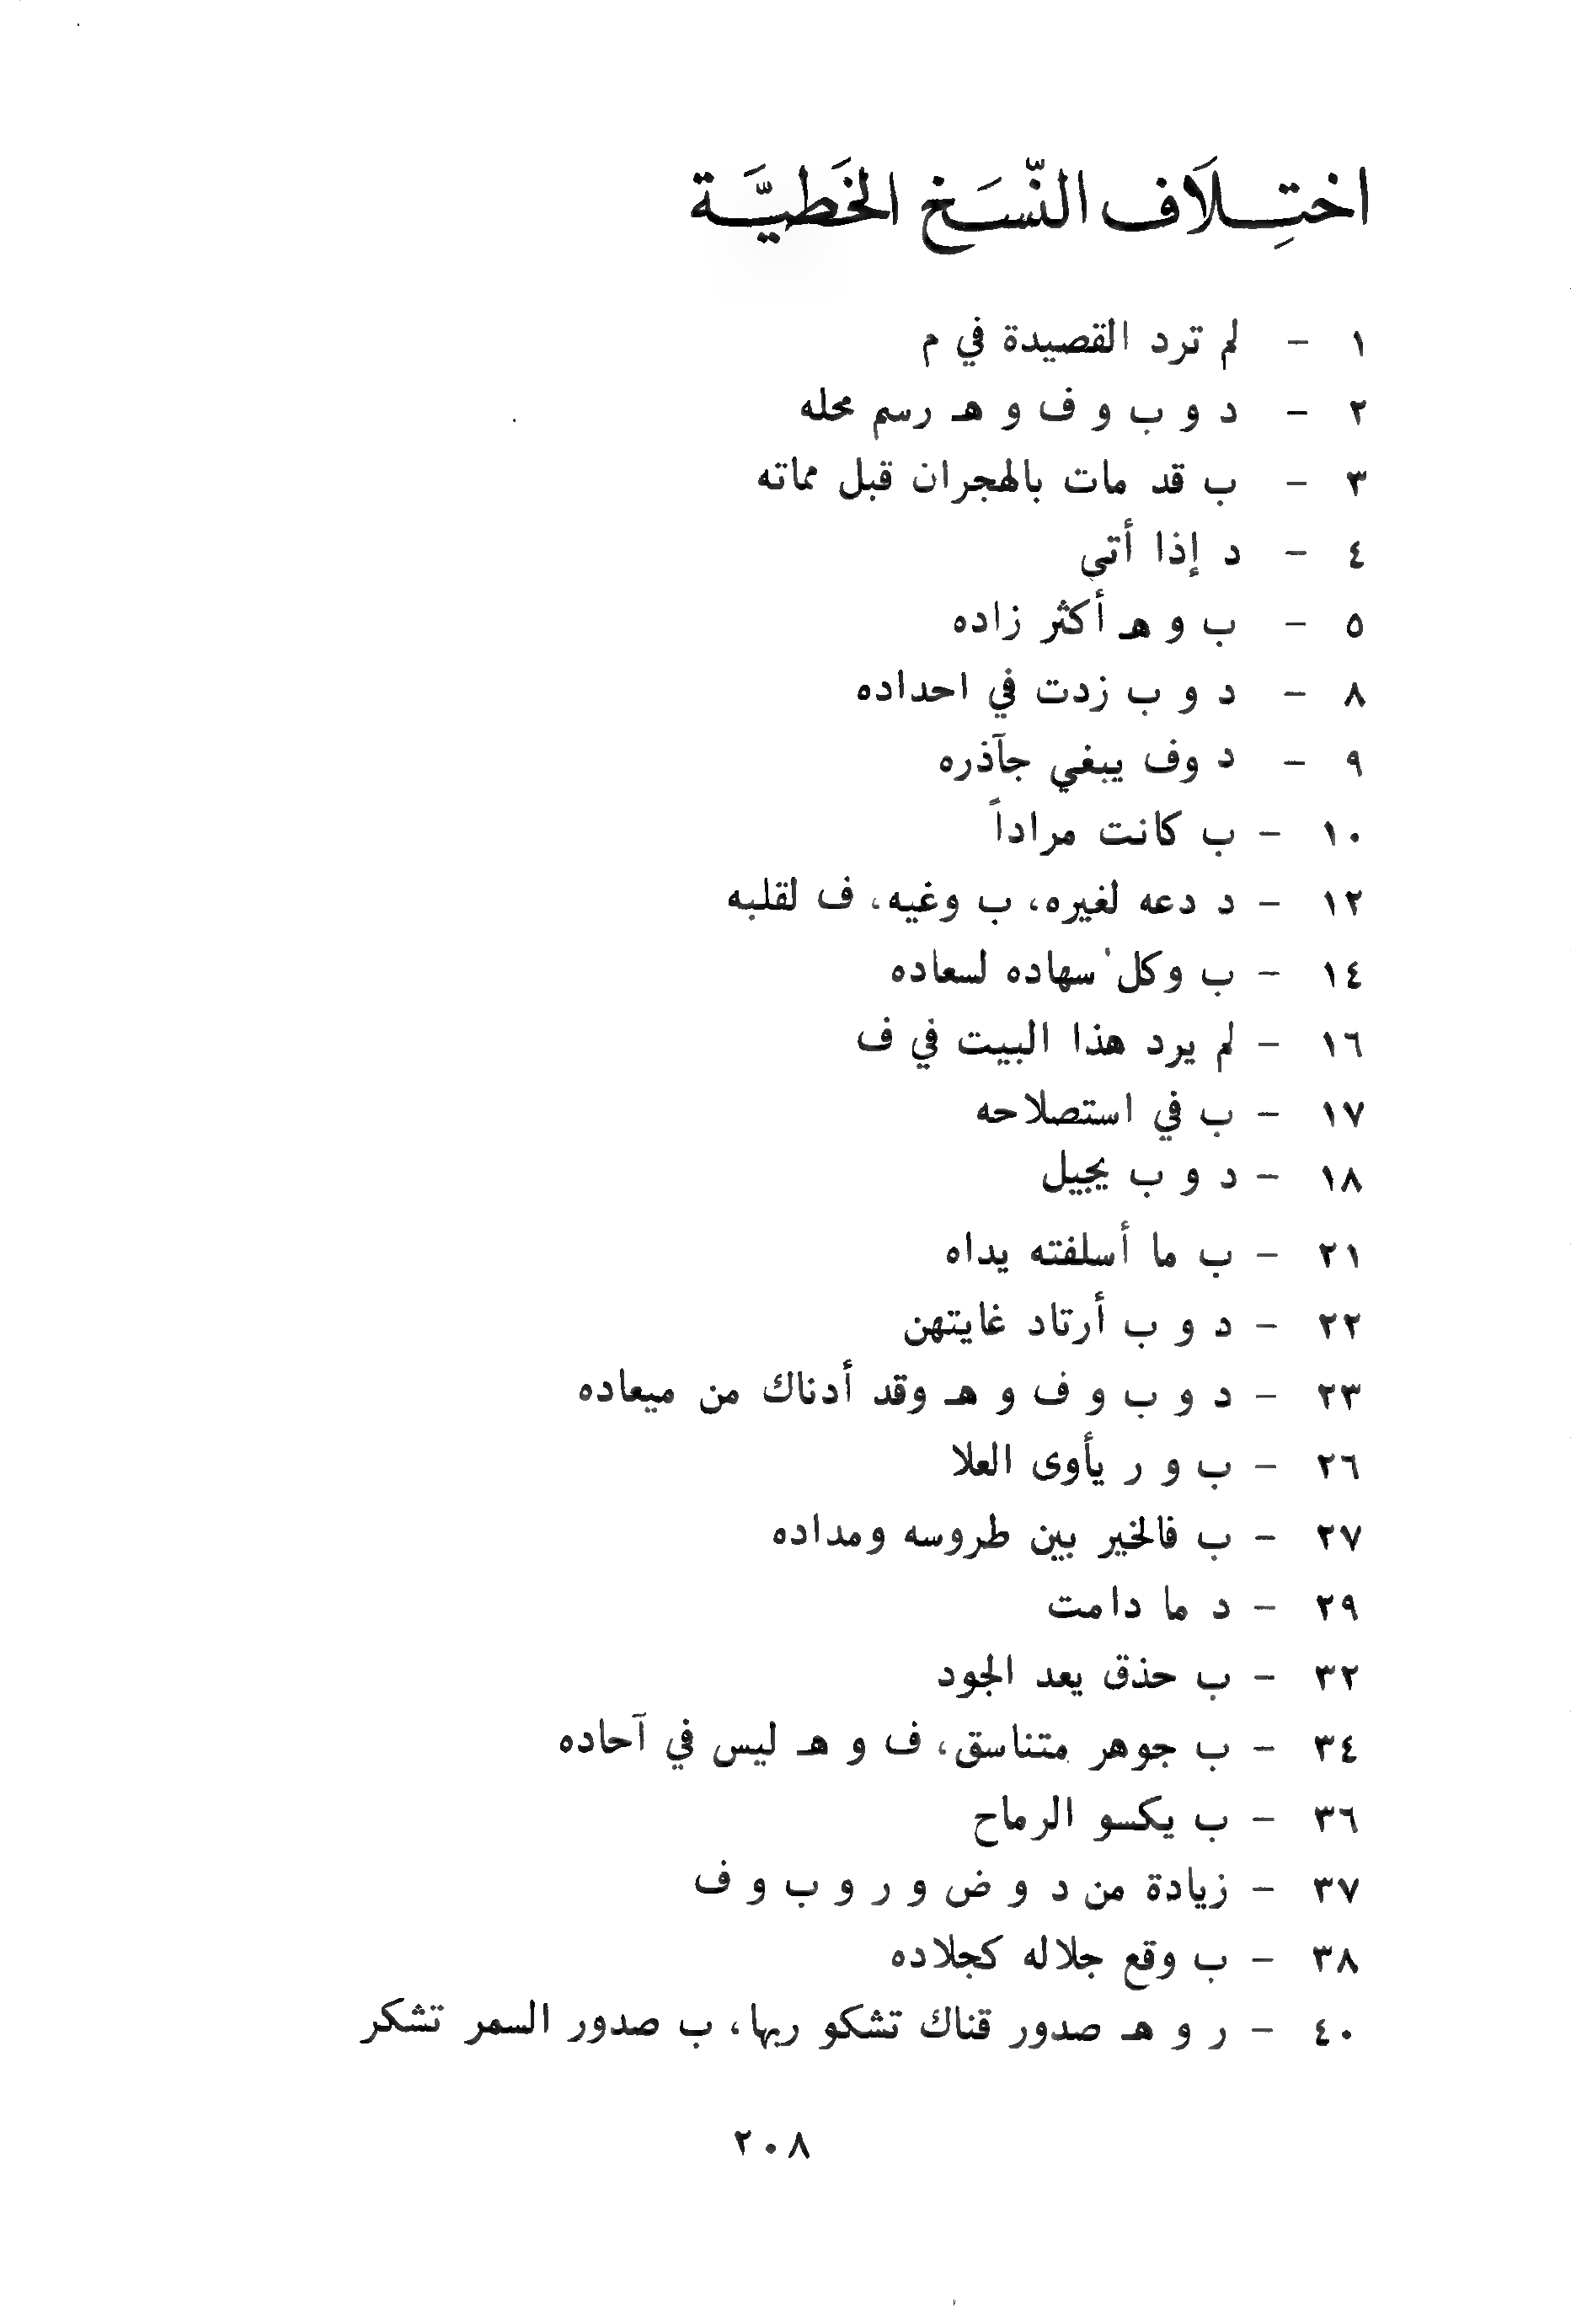 اختِلَاف النّسَخ الخَطيَّة
١ - لم ترد القصيدة في م
٢ - د و ب و ف و هـ رسم محله
٣ - ب قد مات بالهجران قبل مماته
٤ - د إذا أتى
٥ - ب و هـ أكثر زاده
٨ - د و ب زدت في احداده
٩ - د وف يبغي جآذره
١٠ - ب كانت مراداً
١٢ - د دعه لغيره، ب وغيه، ف لقلبه
١٤ - ب وكل سهاده لسعاده
١٦ - لم يرد هذا البيت في ف
١٧ - ب في استصلاحه
١٨ - د و ب يجيل
٢١ - ب ما أسلفته يداه
٢٢ - د و ب أرتاد غايتهن
٢٣ - د و ب و ف و هـ وقد أدناك من ميعاده
٢٦ - ب و ر يأوى العلا
٢٧ - ب فالخير بين طروسه ومداده
٢٩ - د ما دامت
٣٢ - ب حذق يعد الجود
٣٤ - ب جوهر متناسق، ف و هـ ليس في آحاده
٣٦ - ب يكسو الرماح
٣٧ - زيادة من د و ض و ر و ب و ف
٣٨ - ب وقع جلاله كجلاده
٤٠ - ر و هـ صدور قناك تشكو ربها، ب صدور السمر تشكر
٢٠٨